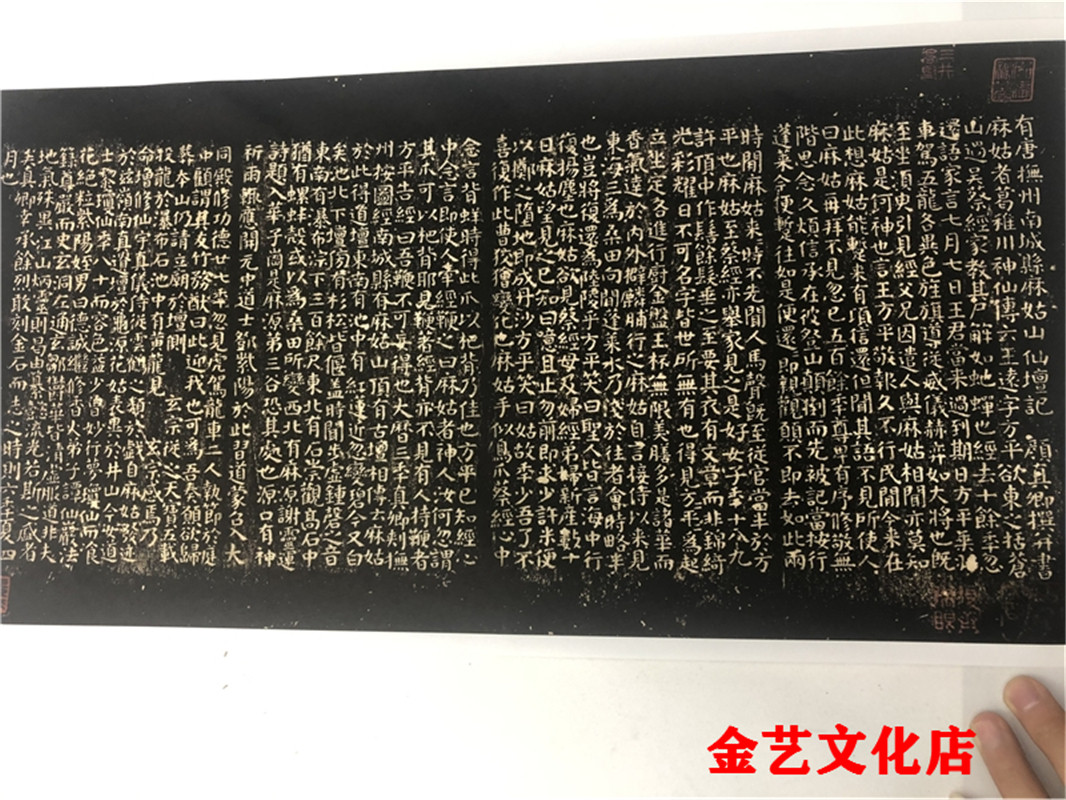 有唐撫州南城縣麻姑山仙壇記 顏真卿撰并書
麻姑者葛稚川神仙傳云王遠字方平欲東之括蒼
山過吳蔡經家教其尸解如虵蟬也經去十餘年忽
還語家言七月七日王君當來過到期日方平乘羽
車駕五龍各異色旌旗導從威儀赫弈如大將也既
至坐須臾引見經父兄因遣人與麻姑相聞亦莫知
麻姑是何神也言王方平敬報久不行民間今來在
此想麻姑能蹔來有頃信還但聞其語不見所使人
曰麻姑再拜不見忽已五百餘年尊卑有序修敬無
階思念久煩信承在彼登山顛倒而先被記當按行
蓬萊今便蹔往如是便還即親觀願不即去如此兩
時間麻姑來時不先聞人馬聲既至從官當半於方
平也麻姑至蔡經亦舉家見之是好女子年十八九
許頂中作髻餘髮垂之至要其衣有文章而非錦綺
光彩耀日不可名字皆世所無有也得見方平為起
立坐定各進行廚金盤玉杯無限美膳多是諸華而
香氣達於內外擗麟脯行之麻姑自言接侍以來見
東海三為桑田向間蓬萊水乃淺於往者會時略半
也豈將復還為陸陵乎方平笑曰聖人皆言海中行
復揚塵也麻姑欲見蔡經母及婦經弟婦新產數十
日麻姑望見之已知曰噫且止勿前即求少許米便
以擲之墮地即成丹沙方平笑曰姑故年少吾了不
喜復作此曹狡獪變化也麻姑手似鳥爪蔡經心中
念言背蛘時得此爪以杷背乃佳也方平已知經心
中念言即使人牽經鞭之曰麻姑者神人汝何忽謂
其爪可以杷背耶見鞭著經背亦不見有人持鞭者
方平告經曰吾鞭不可妄得也大曆三年真卿刺撫
州按圖經南城縣有麻姑山頂有古壇相傳云麻姑
於此得道壇東南有池中有紅蓮近忽變碧今又白
矣池北下壇傍有杉松皆偃蓋時聞步虛鍾磬之音
東南有瀑布淙下三百餘尺東北有石崇觀高石中
猶有螺蚌殼或以為桑田所變西北有麻源謝靈運
詩題入華子崗是麻源第三谷恐其處也源口有神
祈雨輒應開元中道士鄧紫陽於此習道蒙召入大
同殿修功德廿七年忽見虎駕龍車二人執節於庭
中顧謂其友竹務猷曰此迎我也可為吾奏願欲歸
葬本山仍請立廟於壇側 玄宗從之天寶五載
投龍於瀑布石池中有黃龍見 玄宗感焉乃
命增修仙宇真儀侍從雲鶴之類於戲自麻姑發迹
於茲嶺南真遺壇於龜源花姑表異於井山今女道
士黎瓊仙年八十而容色益少曾妙行夢瓊仙而飡
花絕粒紫陽姪男曰德誠繼修香火弟子譚仙巖法
籙尊嚴而史玄洞左通玄鄒鬱華皆清虛服道非夫
地氣殊異江山炳靈則曷由纂懿流光若斯之盛者
矣真卿幸承餘烈敢刻金石而志之時則六年夏四
月也
金艺文化店